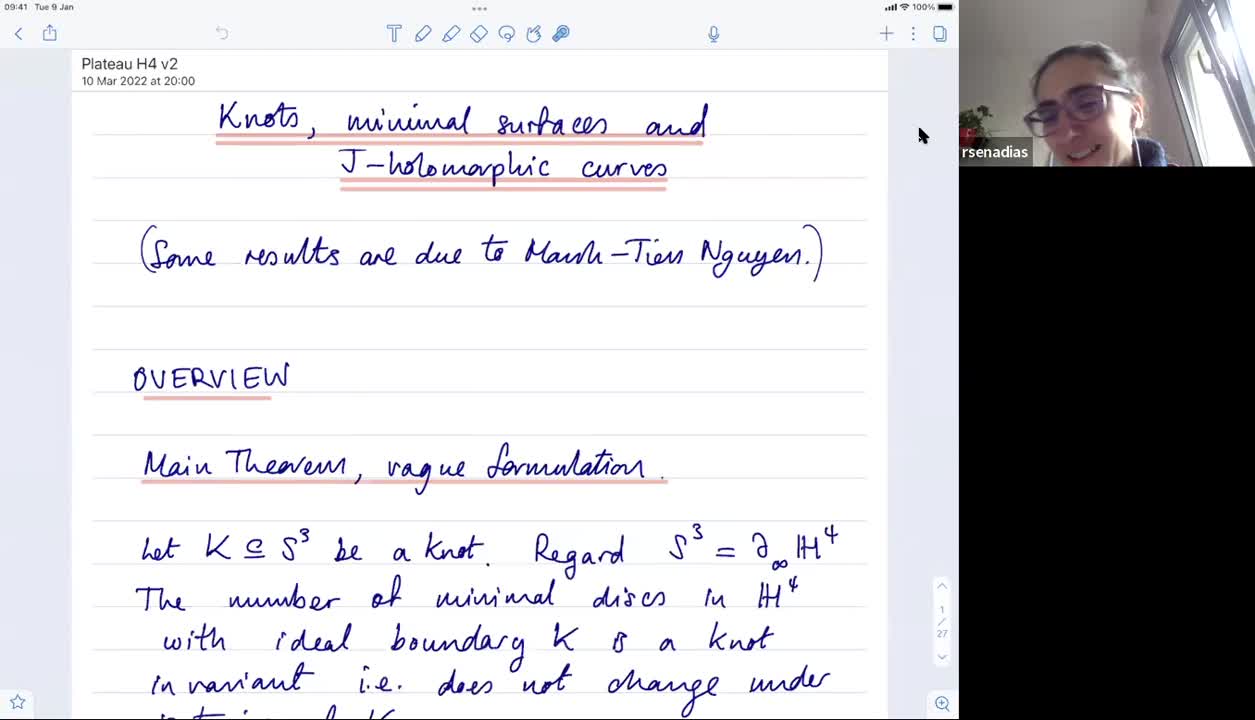 09:41 Tue 9 Jan
100%
Plateau H4 v2
10 Mar 2022 at 20:00
Knots, minimal surfaces and
J-holomorphic curves
(Some results are due to Manh-Tien Nguyen.)
OVERVIEW
Main Theorem, vague formulation.
Let K ⊆ S³ be a knot. Regard S³ = ∂∞ ℍ⁴
The number of minimal discs in ℍ⁴
with ideal boundary K is a knot
invariant i.e. does not change under
rsenadias
1
/
27